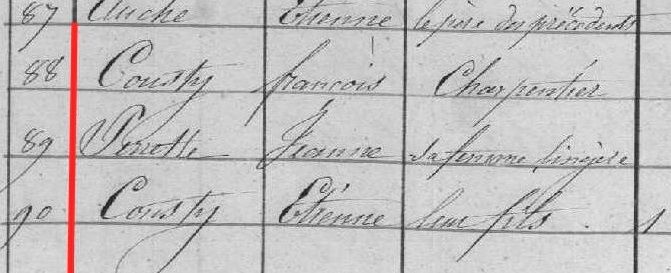 87 Auché Etienne le père des précédents
88 Cousty françois Charpentier
89 Penotte Jeanne sa femme lingère
90 Cousty Etienne leur fils 1